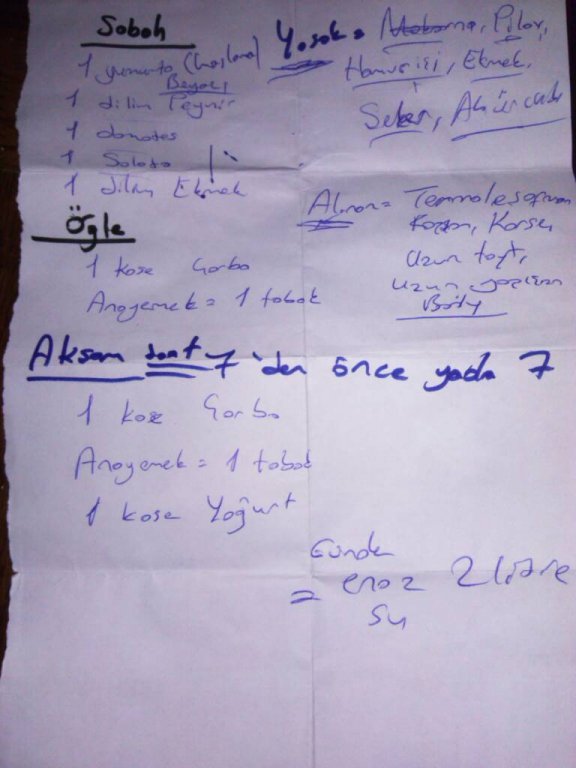 Sabah
1 yumurta (haşlama)
Beyaz
1 dilim Peynir
1 domates
1 Salata
1 dilim Ekmek
Yasak = Makarna, Pilav,
Hamur işi, Ekmek,
Şeker, Abur cubur
Öğle
1 kase Çorba
Anayemek = 1 tabak
Alınan =
Korse
Uzun tayt,
Uzun
Body
Akşam saat 7'den önce yada 7
1 kase Çorba
Anayemek = 1 tabak
1 kase Yoğurt
Günde
= enaz 2 litre
Su